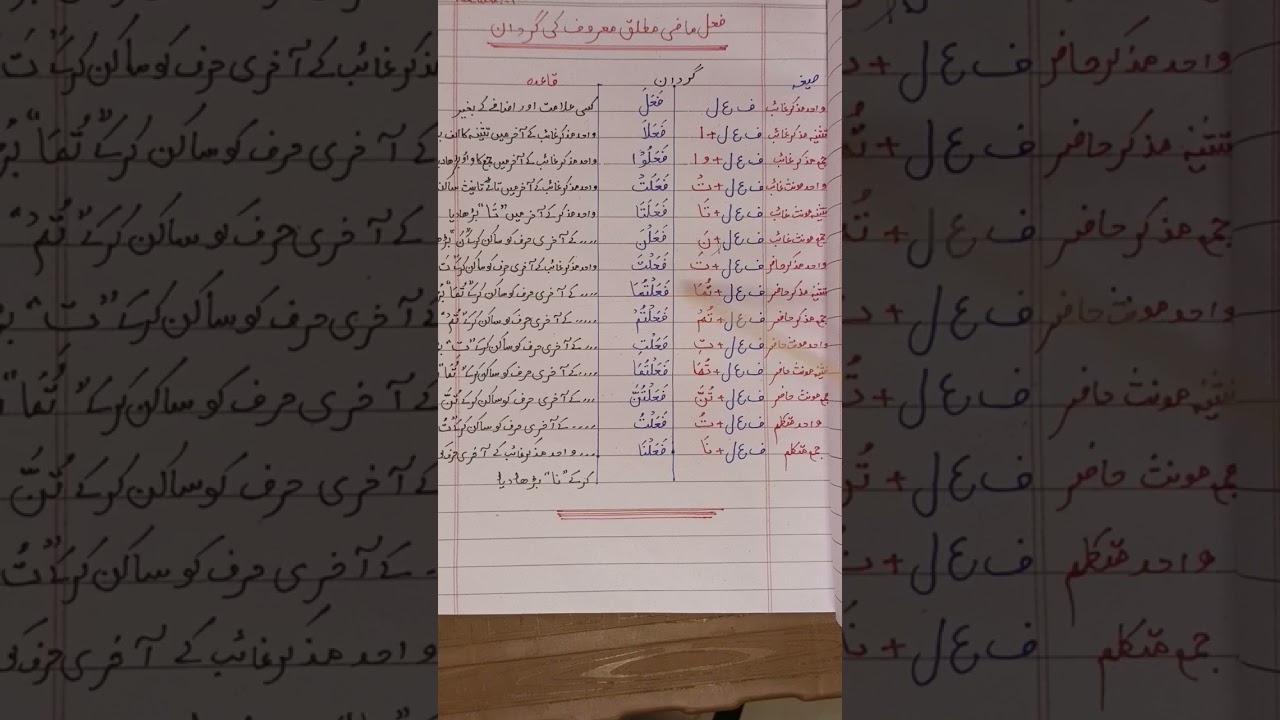 فعل ماضی مطلق معروف کی گردان
صیغہ گردان قاعدہ
واحد مذکر غائب ف ع ل فَعَلَ کسی علامت اور اضافے کے بغیر
تثنیہ مذکر غائب ف ع ل + ا فَعَلَا واحد مذکر غائب کے آخر میں تثنیہ کا الف
جمع مذکر غائب ف ع ل + و ا فَعَلُوْا واحد مذکر غائب کے آخر میں جمع کا واؤ
واحد مونث غائب ف ع ل + تْ فَعَلَتْ واحد مذکر غائب کے آخر میں تائے تانیث ساکن
تثنیہ مونث غائب ف ع ل + تَا فَعَلَتَا واحد مذکر کے آخر میں "تَا" بڑھا دیا
جمع مونث غائب ف ع ل + نَ فَعَلْنَ .... کے آخری حرف کو ساکن کرکے "نَ"
واحد مذکر حاضر ف ع ل + تَ فَعَلْتَ واحد مذکر غائب کے آخری حرف کو ساکن کرکے تَ
تثنیہ مذکر حاضر ف ع ل + تُمَا فَعَلْتُمَا .... کے آخری حرف کو ساکن کرکے "تُمَا"
جمع مذکر حاضر ف ع ل + تُمْ فَعَلْتُمْ ..... کے آخری حرف کو ساکن کرکے "تُمْ"
واحد مونث حاضر ف ع ل + تِ فَعَلْتِ .... کے آخری حرف کو ساکن کرکے "تِ"
تثنیہ مونث حاضر ف ع ل + تُمَا فَعَلْتُمَا .... کے آخری حرف کو ساکن کرکے "تُمَا"
جمع مونث حاضر ف ع ل + تُنَّ فَعَلْتُنَّ .... کے آخری حرف کو ساکن کرکے تُنَّ
واحد متکلم ف ع ل + تُ فَعَلْتُ ..... کے آخری حرف کو ساکن کرکے تُ
جمع متکلم ف ع ل + نَا فَعَلْنَا .... واحد مذکر غائب کے آخری حرف کو
کرکے "نا" بڑھا دیا